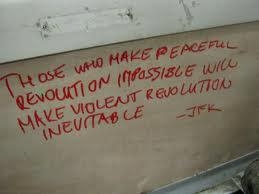 THOSE WHO MAKE PEACEFUL
REVOLUTION IMPOSSIBLE WILL
MAKE VIOLENT REVOLUTION
INEVITABLE -JFK